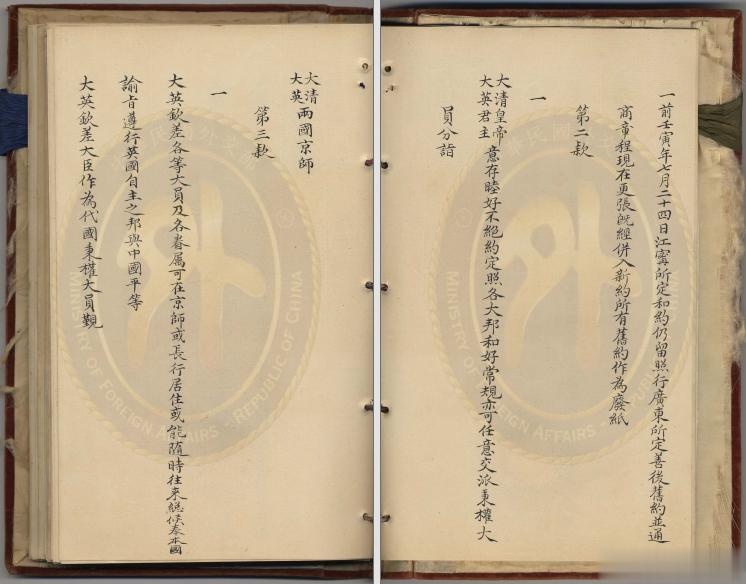 一前壬寅年七月二十四日江寧所定和約仍留照行廣東所定善後舊約並通
商章程現在更張既經併入新約所有舊約作為廢紙
第二款
一
大清皇帝
大英君主意存睦好不絕約定照各大邦和好常規亦可任意交派秉權大
員分詣
大清
大英兩國京師
第三款
一
大英欽差各等大員及各眷屬可在京師或長行居住或能隨時往來總候奉本國
諭旨遵行英國自主之邦與中國平等
大英欽差大臣作為代國秉權大員覲
MINISTRY OF FOREIGN AFFAIRS REPUBLIC OF CHINA